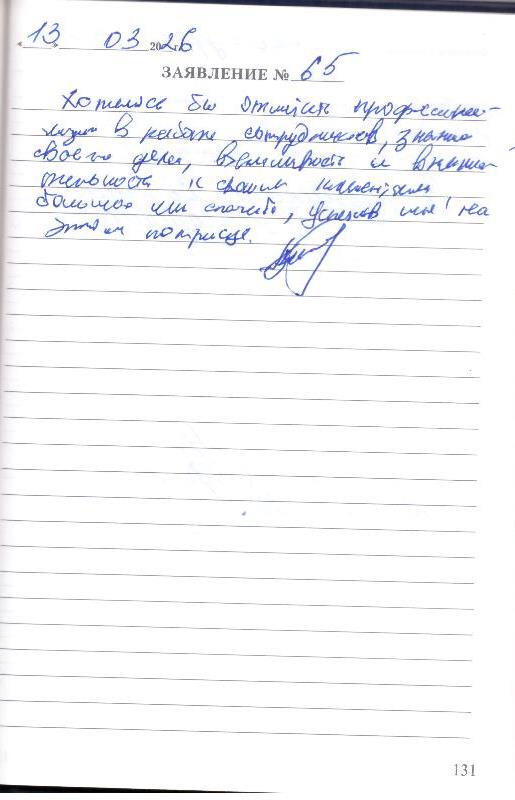 «13» 03 2026 г.
ЗАЯВЛЕНИЕ № 65
Хотелось бы отметить профессиона-
лизм в работе сотрудников, знание
своего дела, вежливость и внима-
тельность к своим клиентам
большое им спасибо, успехов им! на
этом поприще.
131